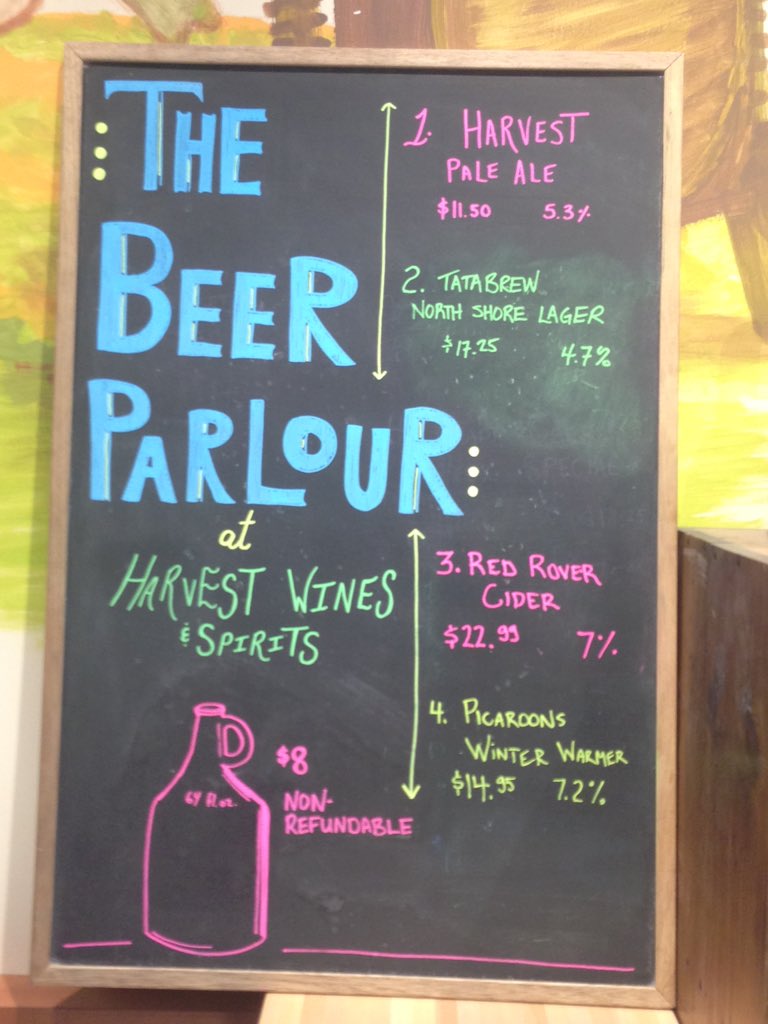 THE
BEER
PARLOUR
at
HARVEST WINES
& SPIRITS
1. HARVEST
PALE ALE
$11.50 5.3%
2. TATABREW
NORTH SHORE LAGER
$17.25 4.7%
3. RED ROVER
CIDER
$22.99 7%
4. PICAROONS
WINTER WARMER
$14.95 7.2%
64 fl.oz.
$8
NON-
REFUNDABLE